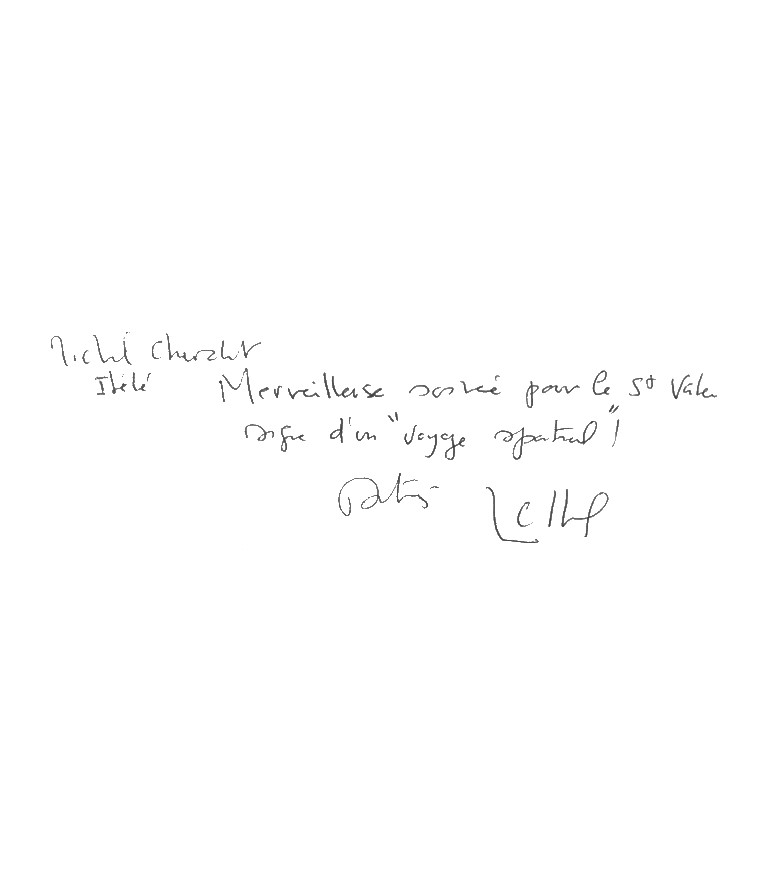 Michel Chevalet
Itélé Merveilleuse soirée pour la St Valen
signe d'un "voyage spatial"!